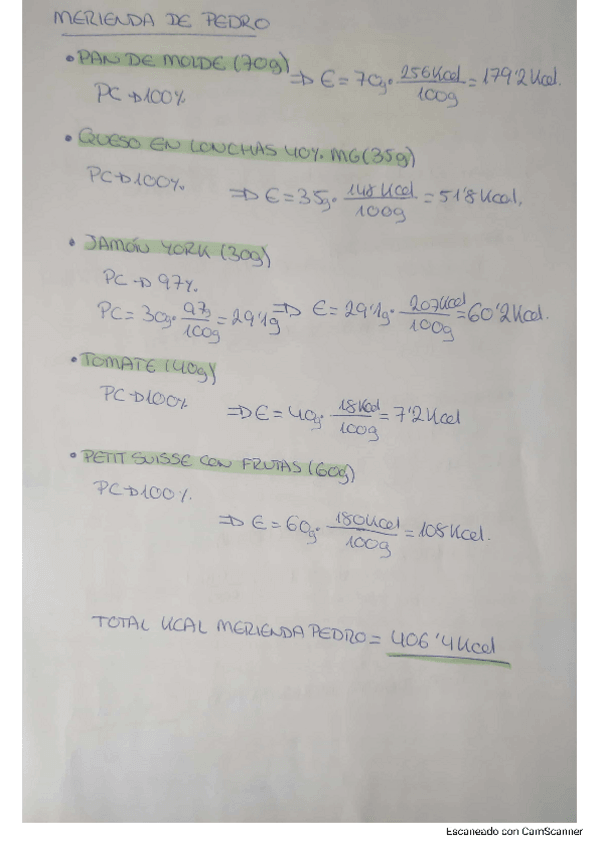 MERIENDA DE PEDRO
• PAN DE MOLDE (70g) => E = 70g · 256Kcal/100g = 179'2Kcal.
PC → 100%
• QUESO EN LONCHAS 40% MG (35g)
PC → 100%. => E = 35g · 148Kcal/100g = 51'8Kcal.
• JAMÓN YORK (30g)
PC → 97%.
PC = 30g · 97g/100g = 29'1g => E = 29'1g · 207Kcal/100g = 60'2Kcal.
• TOMATE (40g)
PC → 100% => E = 40g · 18Kcal/100g = 7'2Kcal
• PETIT SUISSE CON FRUTAS (60g)
PC → 100%.
=> E = 60g · 180Kcal/100g = 108Kcal.
TOTAL KCAL MERIENDA PEDRO = 406'4Kcal
Escaneado con CamScanner